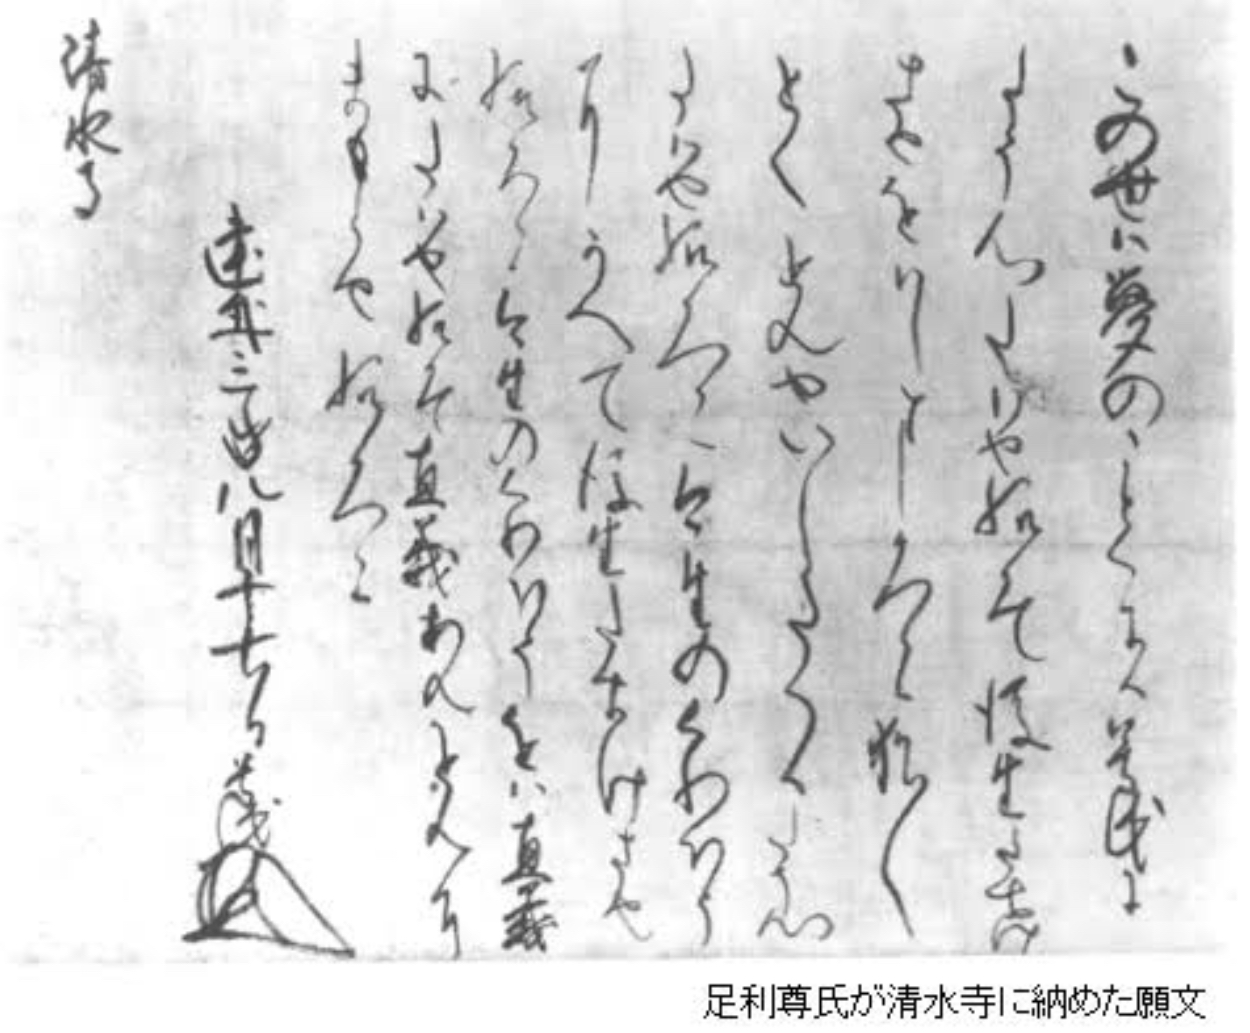 この世ハ夢のことくに候尊氏に
たう心たハせ給候て後生たすけ
させをハしまし候へく候猶々
とくとんせいしたく候たう心
たハせ給候へく候今生のくわほう
にかへて後生たすけさせ
給候へく候今生のくわほうをハ直義
にたハせ給候て直義あんをんに
まもらせ給候へく候
建武三年八月十七日 尊氏
清水寺
足利尊氏が清水寺に納めた願文